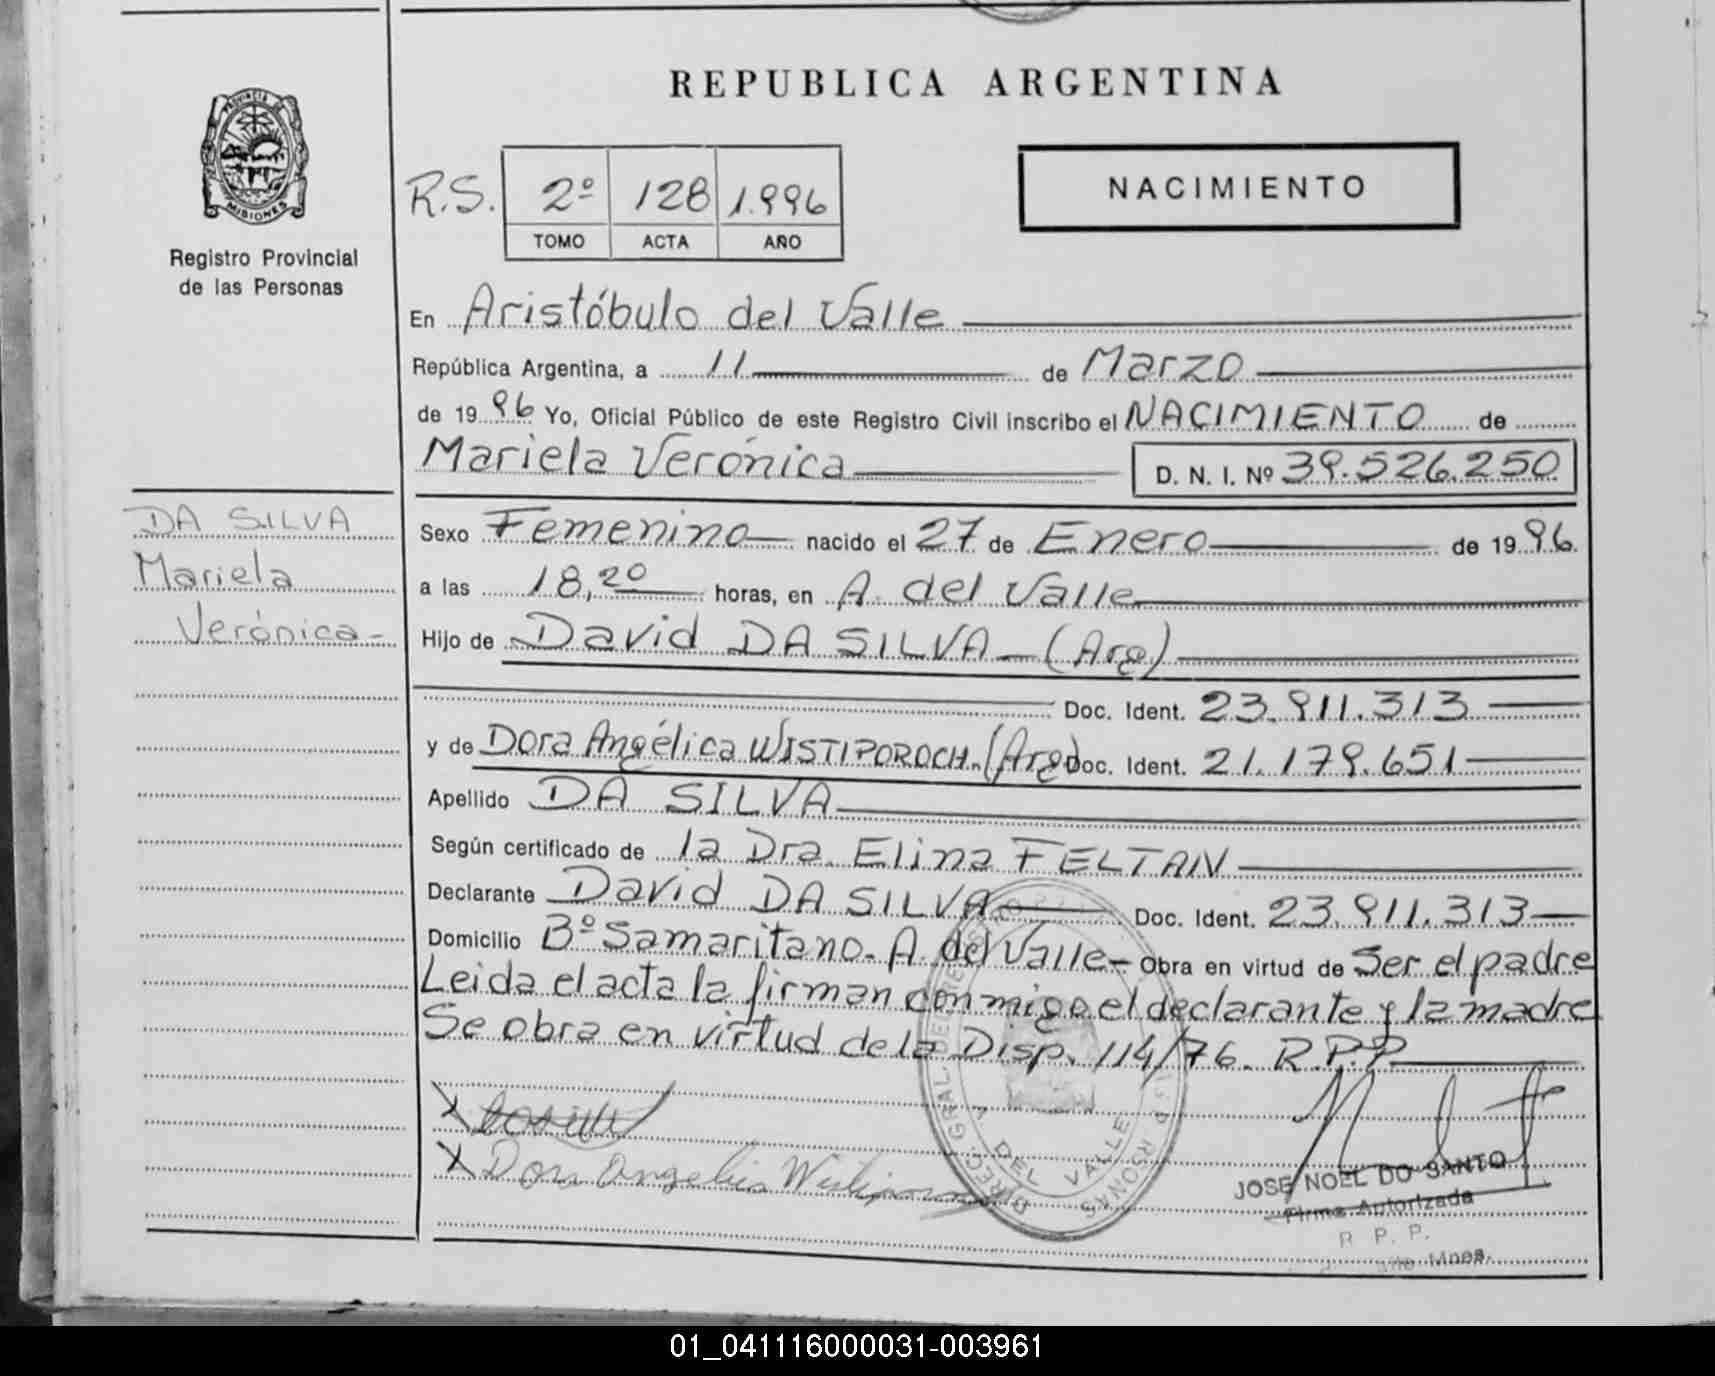 REPUBLICA ARGENTINA
PROVINCIA DE
MISIONES
Registro Provincial
de las Personas
R.S. 2º 128 1.996
TOMO ACTA AÑO
NACIMIENTO
En Aristóbulo del Valle
República Argentina, a 11 de Marzo
de 1996 Yo, Oficial Público de este Registro Civil inscribo el NACIMIENTO de
Mariela Verónica D. N. I. Nº 39.526.250
DA SILVA
Mariela
Verónica-
Sexo Femenino nacido el 27 de Enero de 1996.
a las 18,20 horas, en A. del Valle
Hijo de David DA SILVA - (Arg)
Doc. Ident. 23.911.313
y de Dora Angélica WISTIPOROCH.(Arg) Doc. Ident. 21.179.651
Apellido DA SILVA
Según certificado de la Dra. Elina FELTAN
Declarante David DA SILVA Doc. Ident. 23.911.313
Domicilio Bº Samaritano. A. del Valle- Obra en virtud de Ser el padre
Leida el acta la firman conmigo el declarante y la madre
Se obra en virtud de la Disp. 114/76. R.P.P.
X
X Dora Angelica
DEL VALLE
JOSE NOEL DO SANTO
Firma Autorizada
R. P. P.
Mnes.
01_041116000031-003961